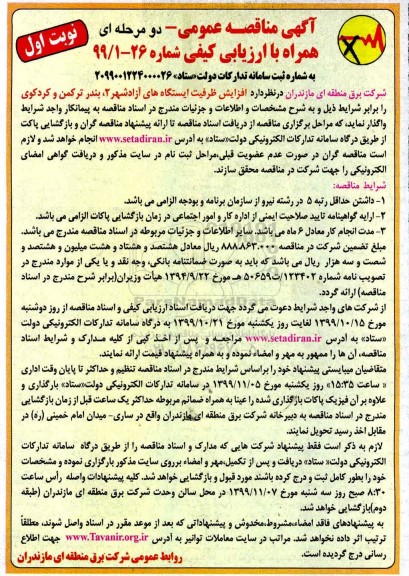 نوبت اول
آگهی مناقصه عمومی- دو مرحله ای
همراه با ارزیابی کیفی شماره ۲۶-۹۹/۱
به شماره ثبت سامانه تدارکات دولت«ستاد» ۲۰۹۹۰۰۱۲۲۴۰۰۰۰۲۶
شرکت برق منطقه ای مازندران درنظردارد افزایش ظرفیت ایستگاه های آزادشهر۲، بندر ترکمن و کردکوی
را برابر شرایط ذیل و به شرح مشخصات و اطلاعات و جزئیات مندرج در اسناد مناقصه به پیمانکار واجد شرایط
واگذار نماید، که مراحل برگزاری مناقصه از دریافت اسناد مناقصه تا ارائه پیشنهاد مناقصه گران و بازگشایی پاکت
از طریق درگاه سامانه تدارکات الکترونیکی دولت«ستاد» به آدرس www.setadiran.ir انجام خواهد شد و لازم
است مناقصه گران در صورت عدم عضویت قبلی،مراحل ثبت نام در سایت مذکور و دریافت گواهی امضای
الکترونیکی را جهت شرکت در مناقصه محقق سازند.
شرایط مناقصه:
۱- داشتن حداقل رتبه ۵ در رشته نیرو از سازمان برنامه و بودجه الزامی می باشد.
۲- ارایه گواهینامه تایید صلاحیت ایمنی از اداره کار و امور اجتماعی در زمان بازگشایی پاکات الزامی می باشد.
۳- مدت انجام کار معادل ۶ ماه می باشد. سایر اطلاعات و جزئیات مربوطه در اسناد مناقصه مندرج می باشد.
مبلغ تضمین شرکت در مناقصه ۸۸۸.۸۶۳.۰۰۰ ریال معادل هشتصد و هشتاد و هشت میلیون و هشتصد و
شصت و سه هزار ریال می باشد که باید به صورت ضمانتنامه بانکی، وجه نقد و یا یکی از موارد مندرج در
تصویب نامه شماره ۱۲۳۴۰۲/ت۵۰۶۵۹ هـ مورخ ۱۳۹۴/۹/۲۲ هیأت وزیران(برابر شرح مندرج در اسناد
مناقصه) ارائه گردد.
از شرکت های واجد شرایط دعوت می گردد جهت دریافت اسناد ارزیابی کیفی و اسناد مناقصه از روز دوشنبه
مورخ ۱۳۹۹/۱۰/۱۵ لغایت روز یکشنبه مورخ ۱۳۹۹/۱۰/۲۱ به درگاه سامانه تدارکات الکترونیکی دولت
«ستاد» به آدرس www.setadiran.ir مراجعه و پس از اخذ کپی از کلیه مدارک و شرایط اسناد
مناقصه، آن ها را ممهور به مهر و امضاء نموده و به همراه پیشنهاد قیمت ارائه نمایند.
متقاضیان میبایستی پیشنهاد خود را براساس شرایط مندرج در اسناد مناقصه تنظیم و حداکثر تا پایان وقت اداری
« ساعت ۱۵:۳۵» روز یکشنبه مورخ ۱۳۹۹/۱۱/۰۵ در سامانه تدارکات الکترونیکی دولت«ستاد» بارگذاری و
علاوه بر آن فیزیک پاکات بازگذاری شده را عینا به همراه ضمائم مربوطه حداکثر یک ساعت قبل از زمان بازگشایی
مندرج در اسناد مناقصه به دبیرخانه شرکت برق منطقه ای مازندران واقع در ساری- میدان امام خمینی (ره) در
مقابل اخذ رسید تحویل نمایند.
لازم به ذکر است فقط پیشنهاد شرکت هایی که مدارک و اسناد مناقصه را از طریق درگاه سامانه تدارکات
الکترونیکی دولت« ستاد» دریافت و پس از تکمیل،مهر و امضاء برروی سایت مذکور بارگزاری نموده و مشخصات
خود را بطور کامل ثبت و درج کرده باشند مورد قبول و بازگشایی خواهد شد. کلیه پیشنهادات واصله رأس ساعت
۸:۳۰ صبح روز سه شنبه مورخ ۱۳۹۹/۱۱/۰۷ در محل سالن وحدت شرکت برق منطقه ای مازندران (طبقه
دوم)بازگشایی خواهد شد.
به پیشنهادهای فاقد امضاء،مشروط،مخدوش و پیشنهاداتی که بعد از موعد مقرر در اسناد واصل شوند، مطلقاً
ترتیب اثر داده نخواهد شد. مراتب در سایت معاملات توانیر به آدرس www.Tavanir.org.ir جهت اطلاع
رسانی درج گردیده است.
روابط عمومی شرکت برق منطقه ای مازندران